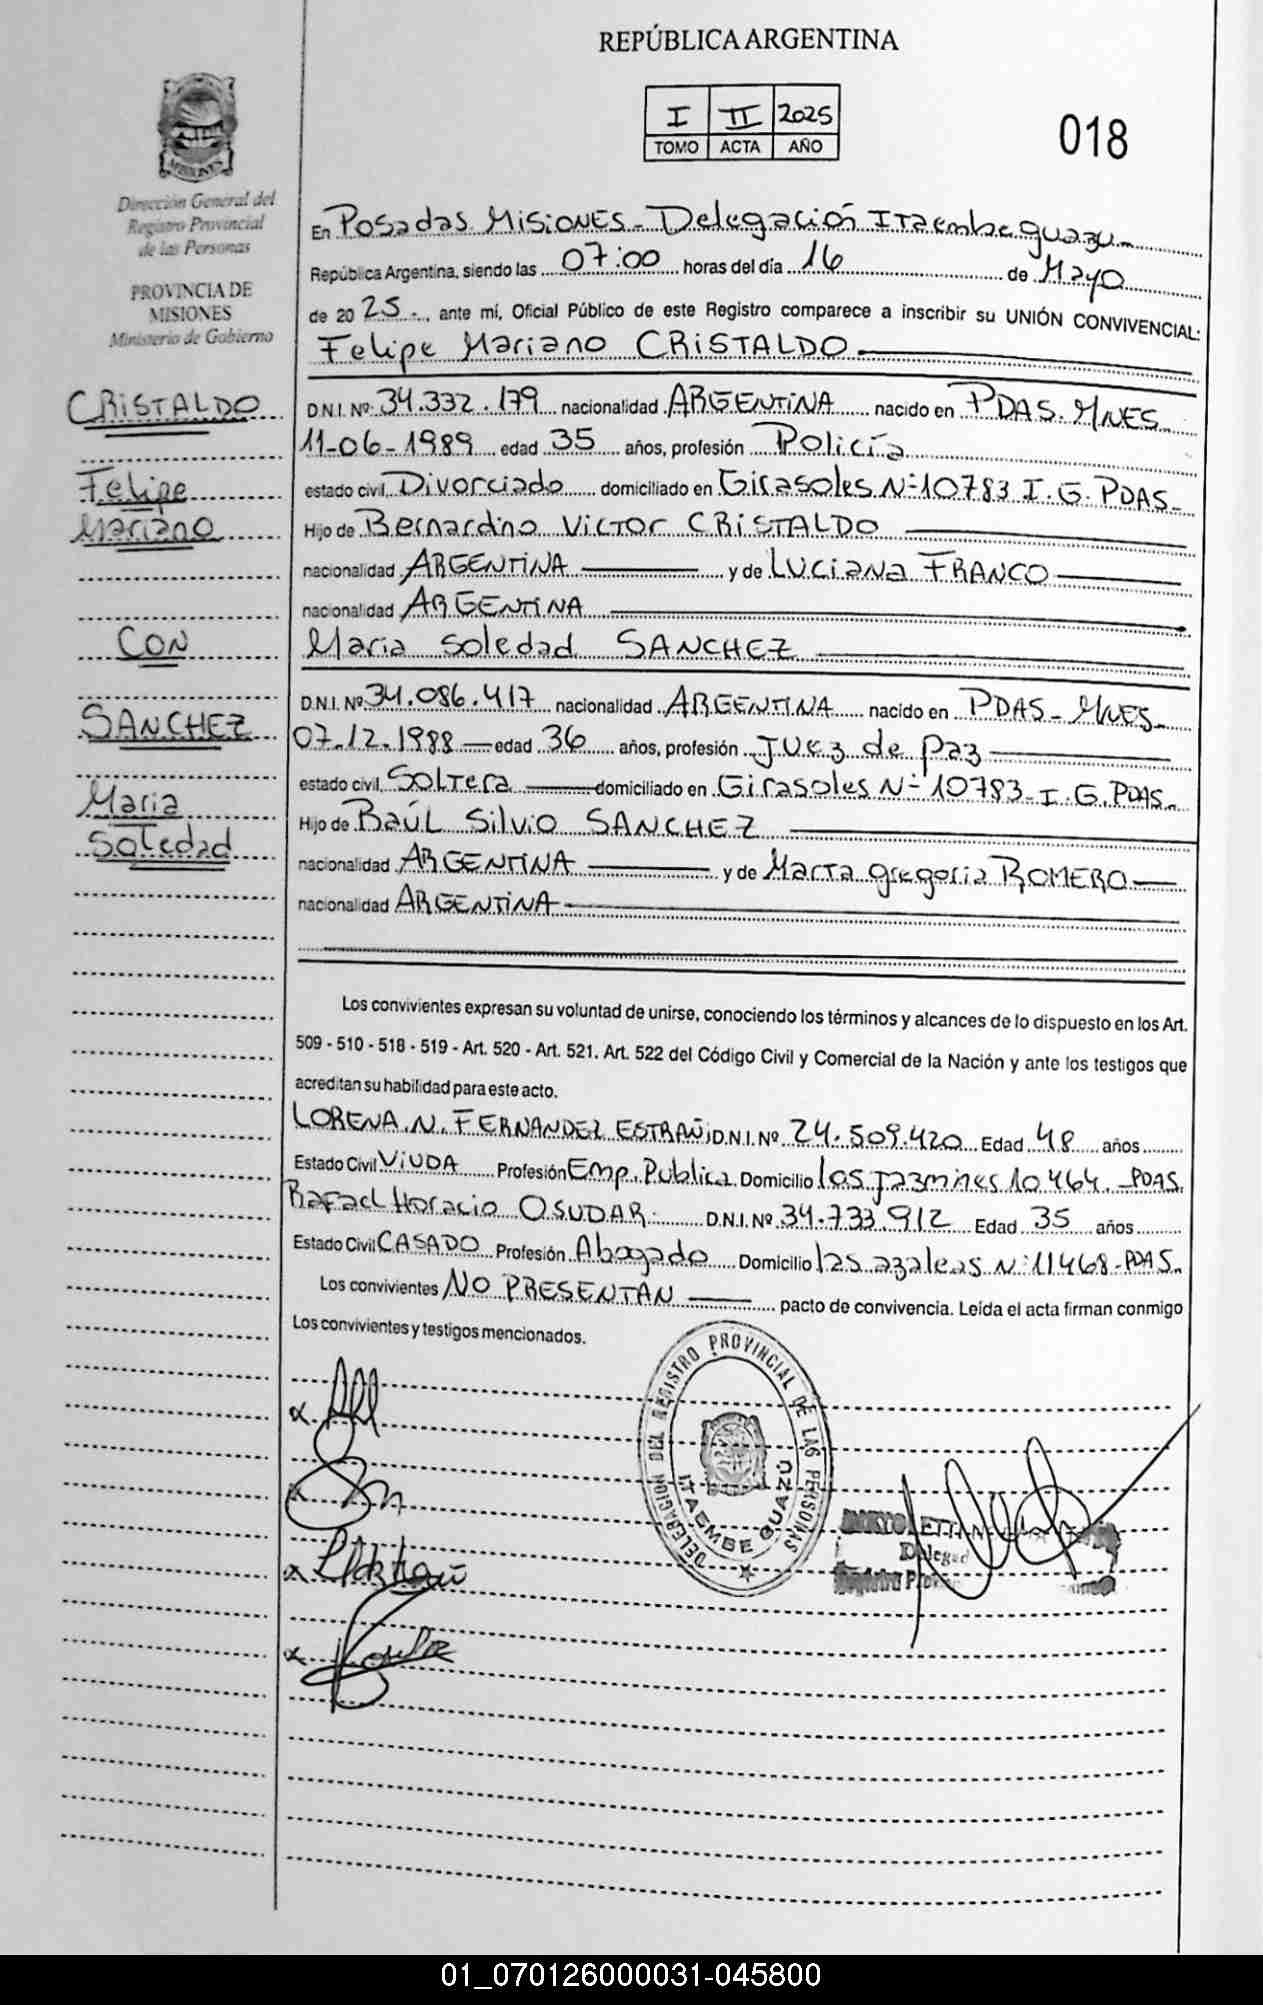 REPÚBLICA ARGENTINA
I II 2025
TOMO ACTA AÑO
018
MISIONES
Dirección General del
Registro Provincial
de las Personas
PROVINCIA DE
MISIONES
Ministerio de Gobierno
CRISTALDO
Felipe
Mariano
CON
SANCHEZ
Maria
Soledad
En Posadas Misiones - Delegación Itaembe guazu -
República Argentina, siendo las 07:00 horas del día 16 de Mayo
de 2025 -, ante mí, Oficial Público de este Registro comparece a inscribir su UNIÓN CONVIVENCIAL:
Felipe Mariano CRISTALDO
D.N.I. Nº 34.332.179 nacionalidad ARGENTINA nacido en PDAS. MNES.
11-06-1989 edad 35 años, profesión Policía
estado civil Divorciado domiciliado en Girasoles N-10783 I. G. PDAS-
Hijo de Bernardino Victor CRISTALDO
nacionalidad ARGENTINA y de Luciana FRANCO
nacionalidad ARGENTINA
Maria Soledad SANCHEZ
D.N.I. Nº 34.086.417 nacionalidad ARGENTINA nacido en PDAS - MNES-
07.12.1988 edad 36 años, profesión Juez de paz
estado civil Soltera domiciliado en Girasoles N- 10783 - I. G. PDAS-
Hijo de Raúl Silvio SANCHEZ
nacionalidad ARGENTINA y de Marta gregoria ROMERO
nacionalidad ARGENTINA
Los convivientes expresan su voluntad de unirse, conociendo los términos y alcances de lo dispuesto en los Art.
509 - 510 - 518 - 519 - Art. 520 - Art. 521. Art. 522 del Código Civil y Comercial de la Nación y ante los testigos que
acreditan su habilidad para este acto.
LORENA N. FERNANDEZ ESTRAÑI D.N.I. Nº 24.509.420 Edad 48 años
Estado Civil VIUDA Profesión Emp. Publica Domicilio los Jazmines 10464. PDAS.
Rafael Horacio OSUDAR. D.N.I. Nº 34.733.912 Edad 35 años
Estado Civil CASADO Profesión Abogado Domicilio las azaleas N: 11468 - PDAS.
Los convivientes NO PRESENTAN pacto de convivencia. Leída el acta firman conmigo
Los convivientes y testigos mencionados.
DELEGACION DEL REGISTRO PROVINCIAL DE LAS PERSONAS
ITAEMBE GUAZÚ
01_070126000031-045800